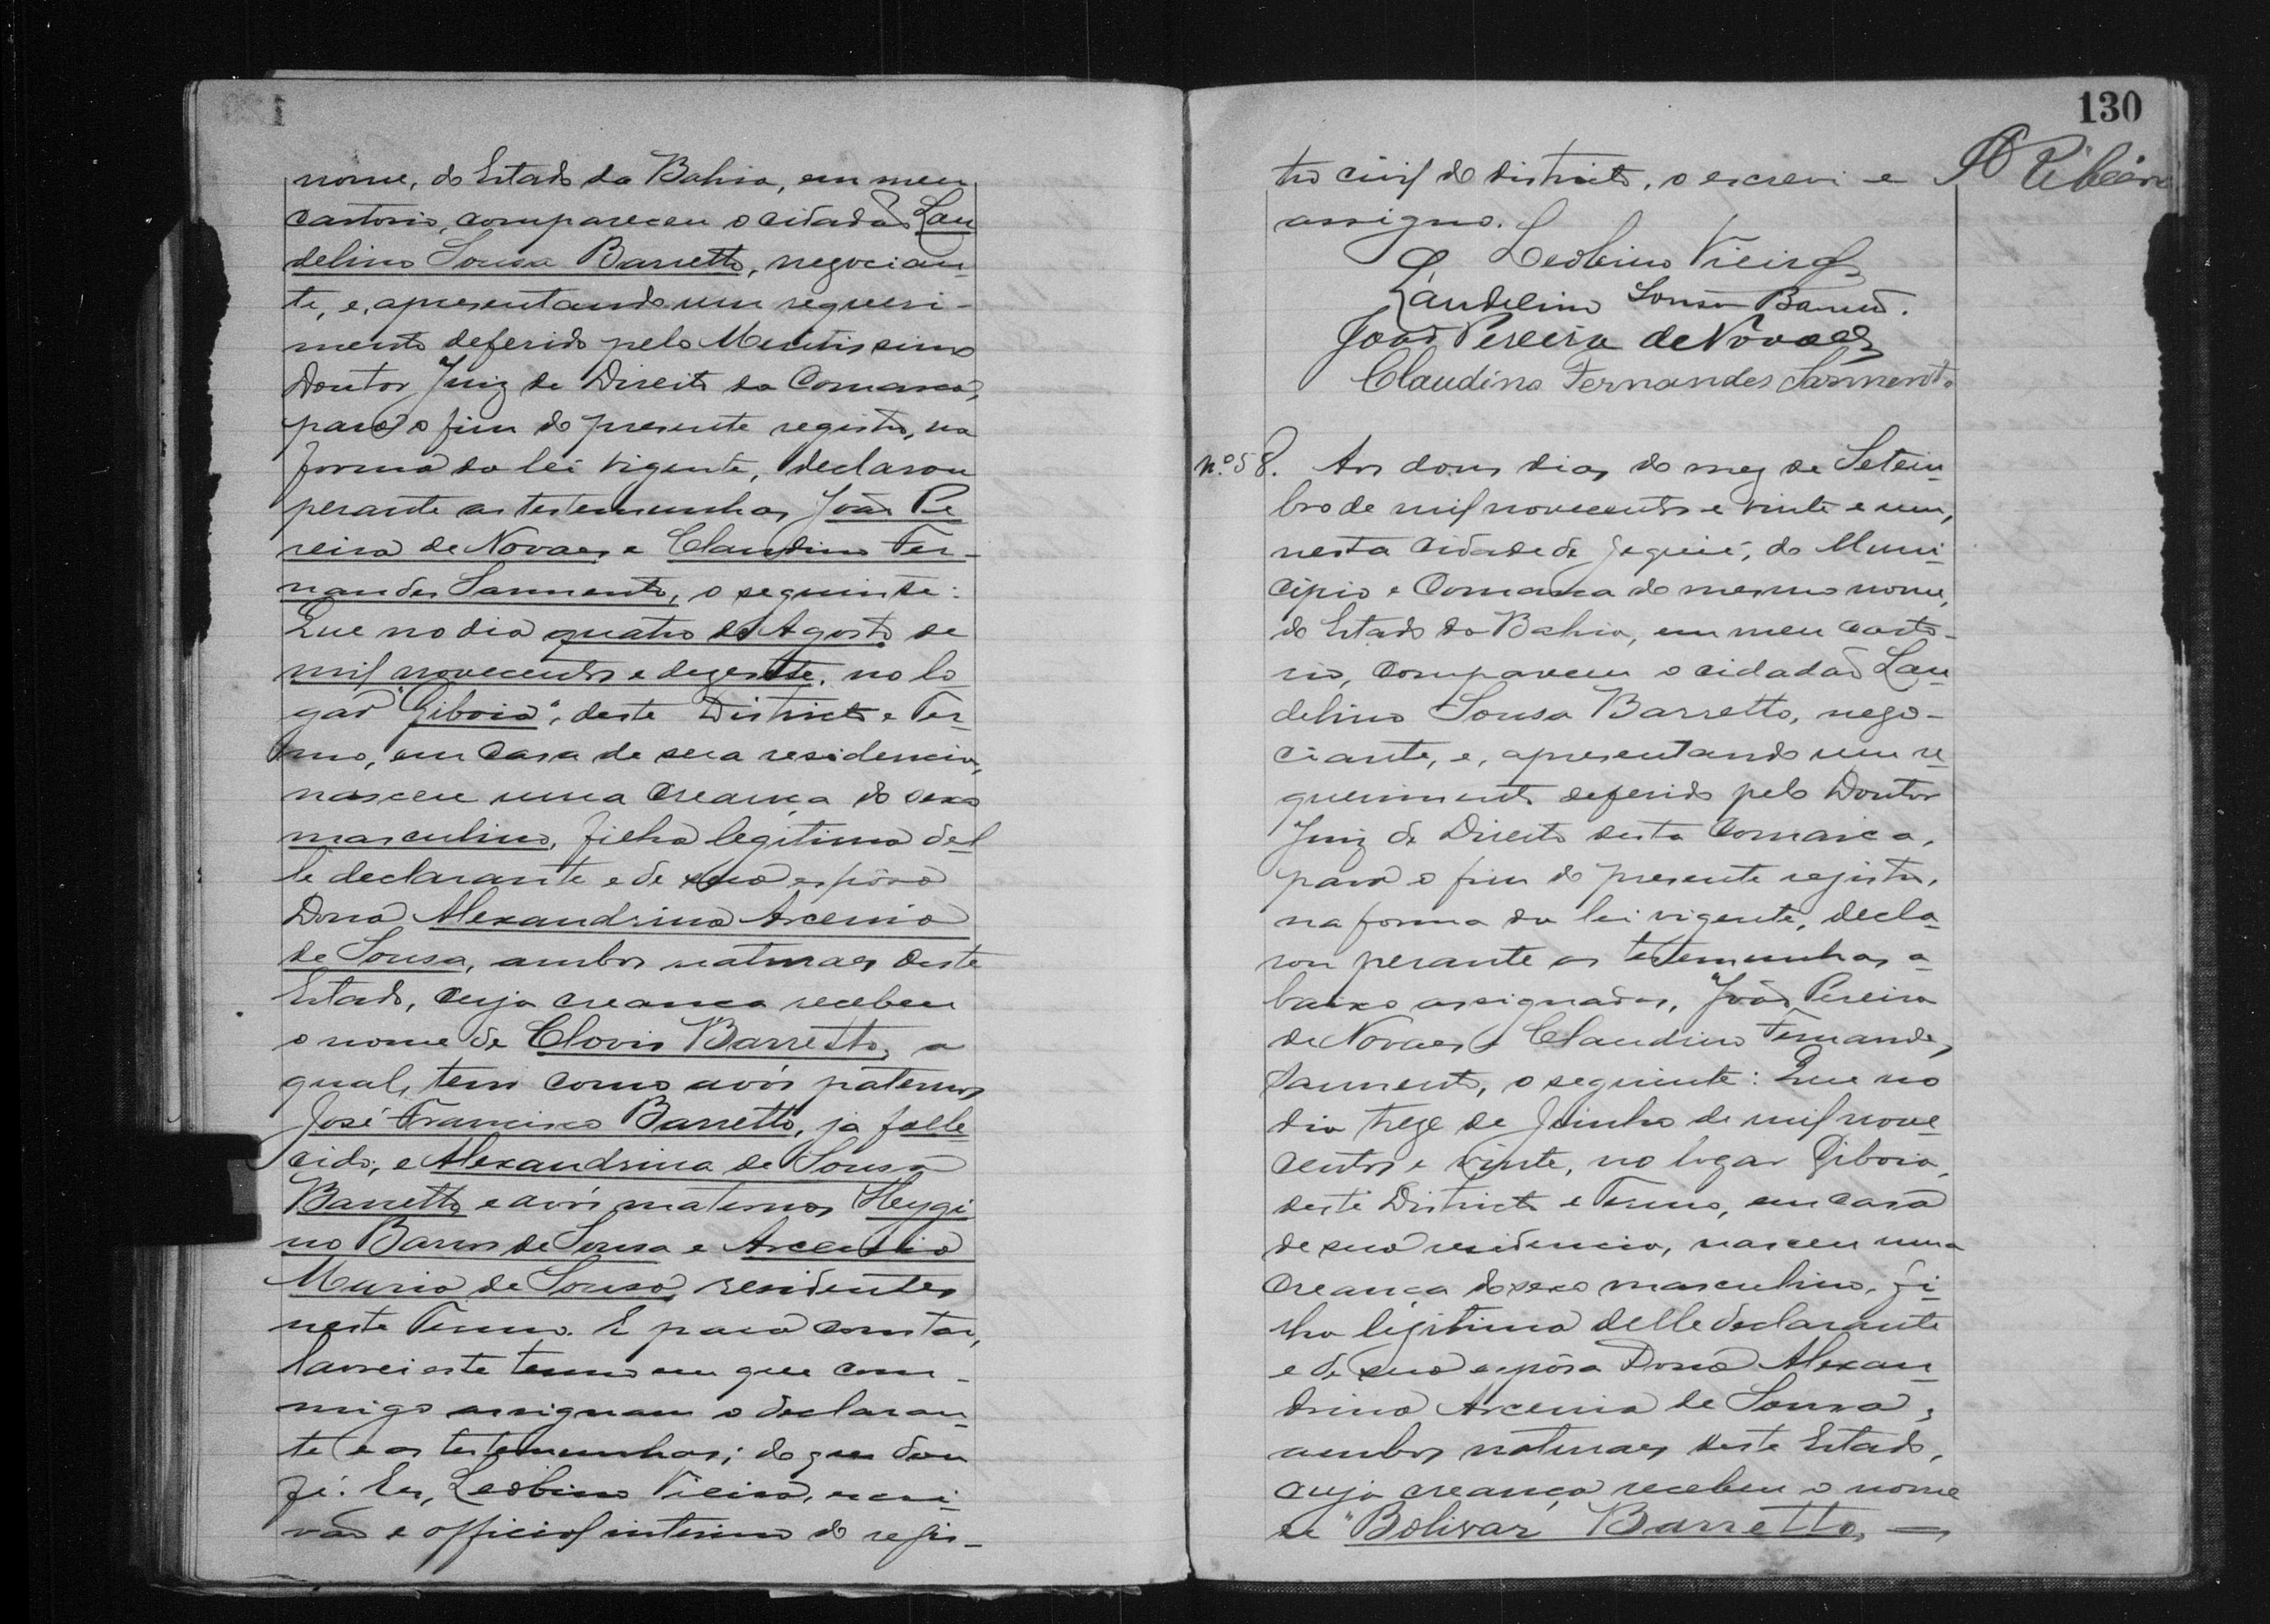 nome, do Estado da Bahia, em meu
cartorio, compareceu o cidadão Lau
delino Sousa Barretto, negocian-
te, e, apresentando um requeri-
mento deferido pelo Meritissimo
Doutor Juiz de Direito da Comarca,
para o fim do presente registro, na
forma da lei vigente, declarou
perante as testemunhas João Pe
reira de Novaes e Claudino Fer-
nandes Sarmento, o seguinte:
Que no dia quatro de Agosto de
mil novecentos e dezesete, no lo
gar "Giboia", deste Districto e Ter-
mo, em casa de sua residencia,
nasceu uma creança do sexo
masculino, filha legitima del
le declarante e de sua espôsa
Dona Alexandrina Arcenia
de Sousa, ambos naturaes deste
Estado, cuja creança recebeu
o nome de Clovis Barretto, a
qual, tem como avós paternos
José Francisco Barretto, já falle
cido, e Alexandrina de Sousa
Barretto e avós maternos Heygi
no Barros de Sousa e Arcenia
Maria de Sousa, residentes
neste Termo. E para constar,
lavrei este termo em que com-
migo assignam o declaran-
te e as testemunhas; do que dou
fé. Eu, Leobino Vieira, escri-
vão e official interino do regis-
130
tro civil do districto, o escrevi e
Ribeiro
assigno.
Leobino Vieira
Laudelino Sousa Barretto.
João Pereira de Novaes
Claudino Fernandes Sarmento
n.º 58. Aos dous dias do mez de Setem-
bro de mil novecentos e vinte e um,
nesta cidade de Jequié, do Muni-
cipio e Comarca do mesmo nome,
do Estado da Bahia, em meu carto-
rio, compareceu o cidadão Lau-
delino Sousa Barretto, nego-
ciante, e, apresentando um re-
querimento deferido pelo Doutor
Juiz de Direito desta Comarca,
para o fim do presente registro,
na forma da lei vigente, decla-
rou perante as testemunhas a-
baixo assignadas, João Pereira
de Novaes e Claudino Fernandes
Sarmento, o seguinte: Que no
dia treze de Junho de mil nove-
centos e vinte, no logar Giboia,
deste Districto e Termo, em casa
de sua residencia, nasceu uma
creança do sexo masculino, fi-
lha legitima delle declarante
e de sua espôsa Dona Alexan-
drina Arcenia de Sousa,
ambos naturaes deste Estado,
cuja creança recebeu o nome
de "Bolivar Barretto,